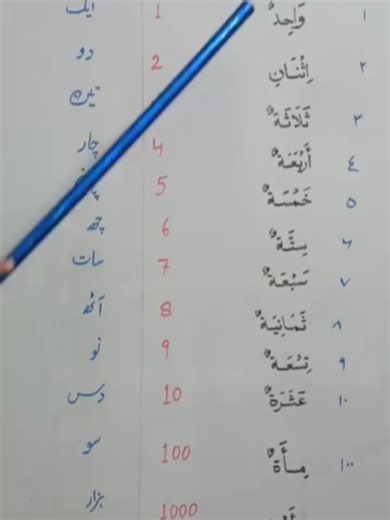 ١ وَاحِدٌ 1 ایک
٢ اِثْنَانِ 2 دو
٣ ثَلَاثَةٌ تین
٤ أَرْبَعَةٌ 4 چار
٥ خَمْسَةٌ 5
٦ سِتَّةٌ 6 چھ
٧ سَبْعَةٌ 7 سات
٨ ثَمَانِيَةٌ 8 آٹھ
٩ تِسْعَةٌ 9 نو
١٠ عَشَرَةٌ 10 دس
١٠٠ مِأَةٌ 100 سو
1000 ہزار